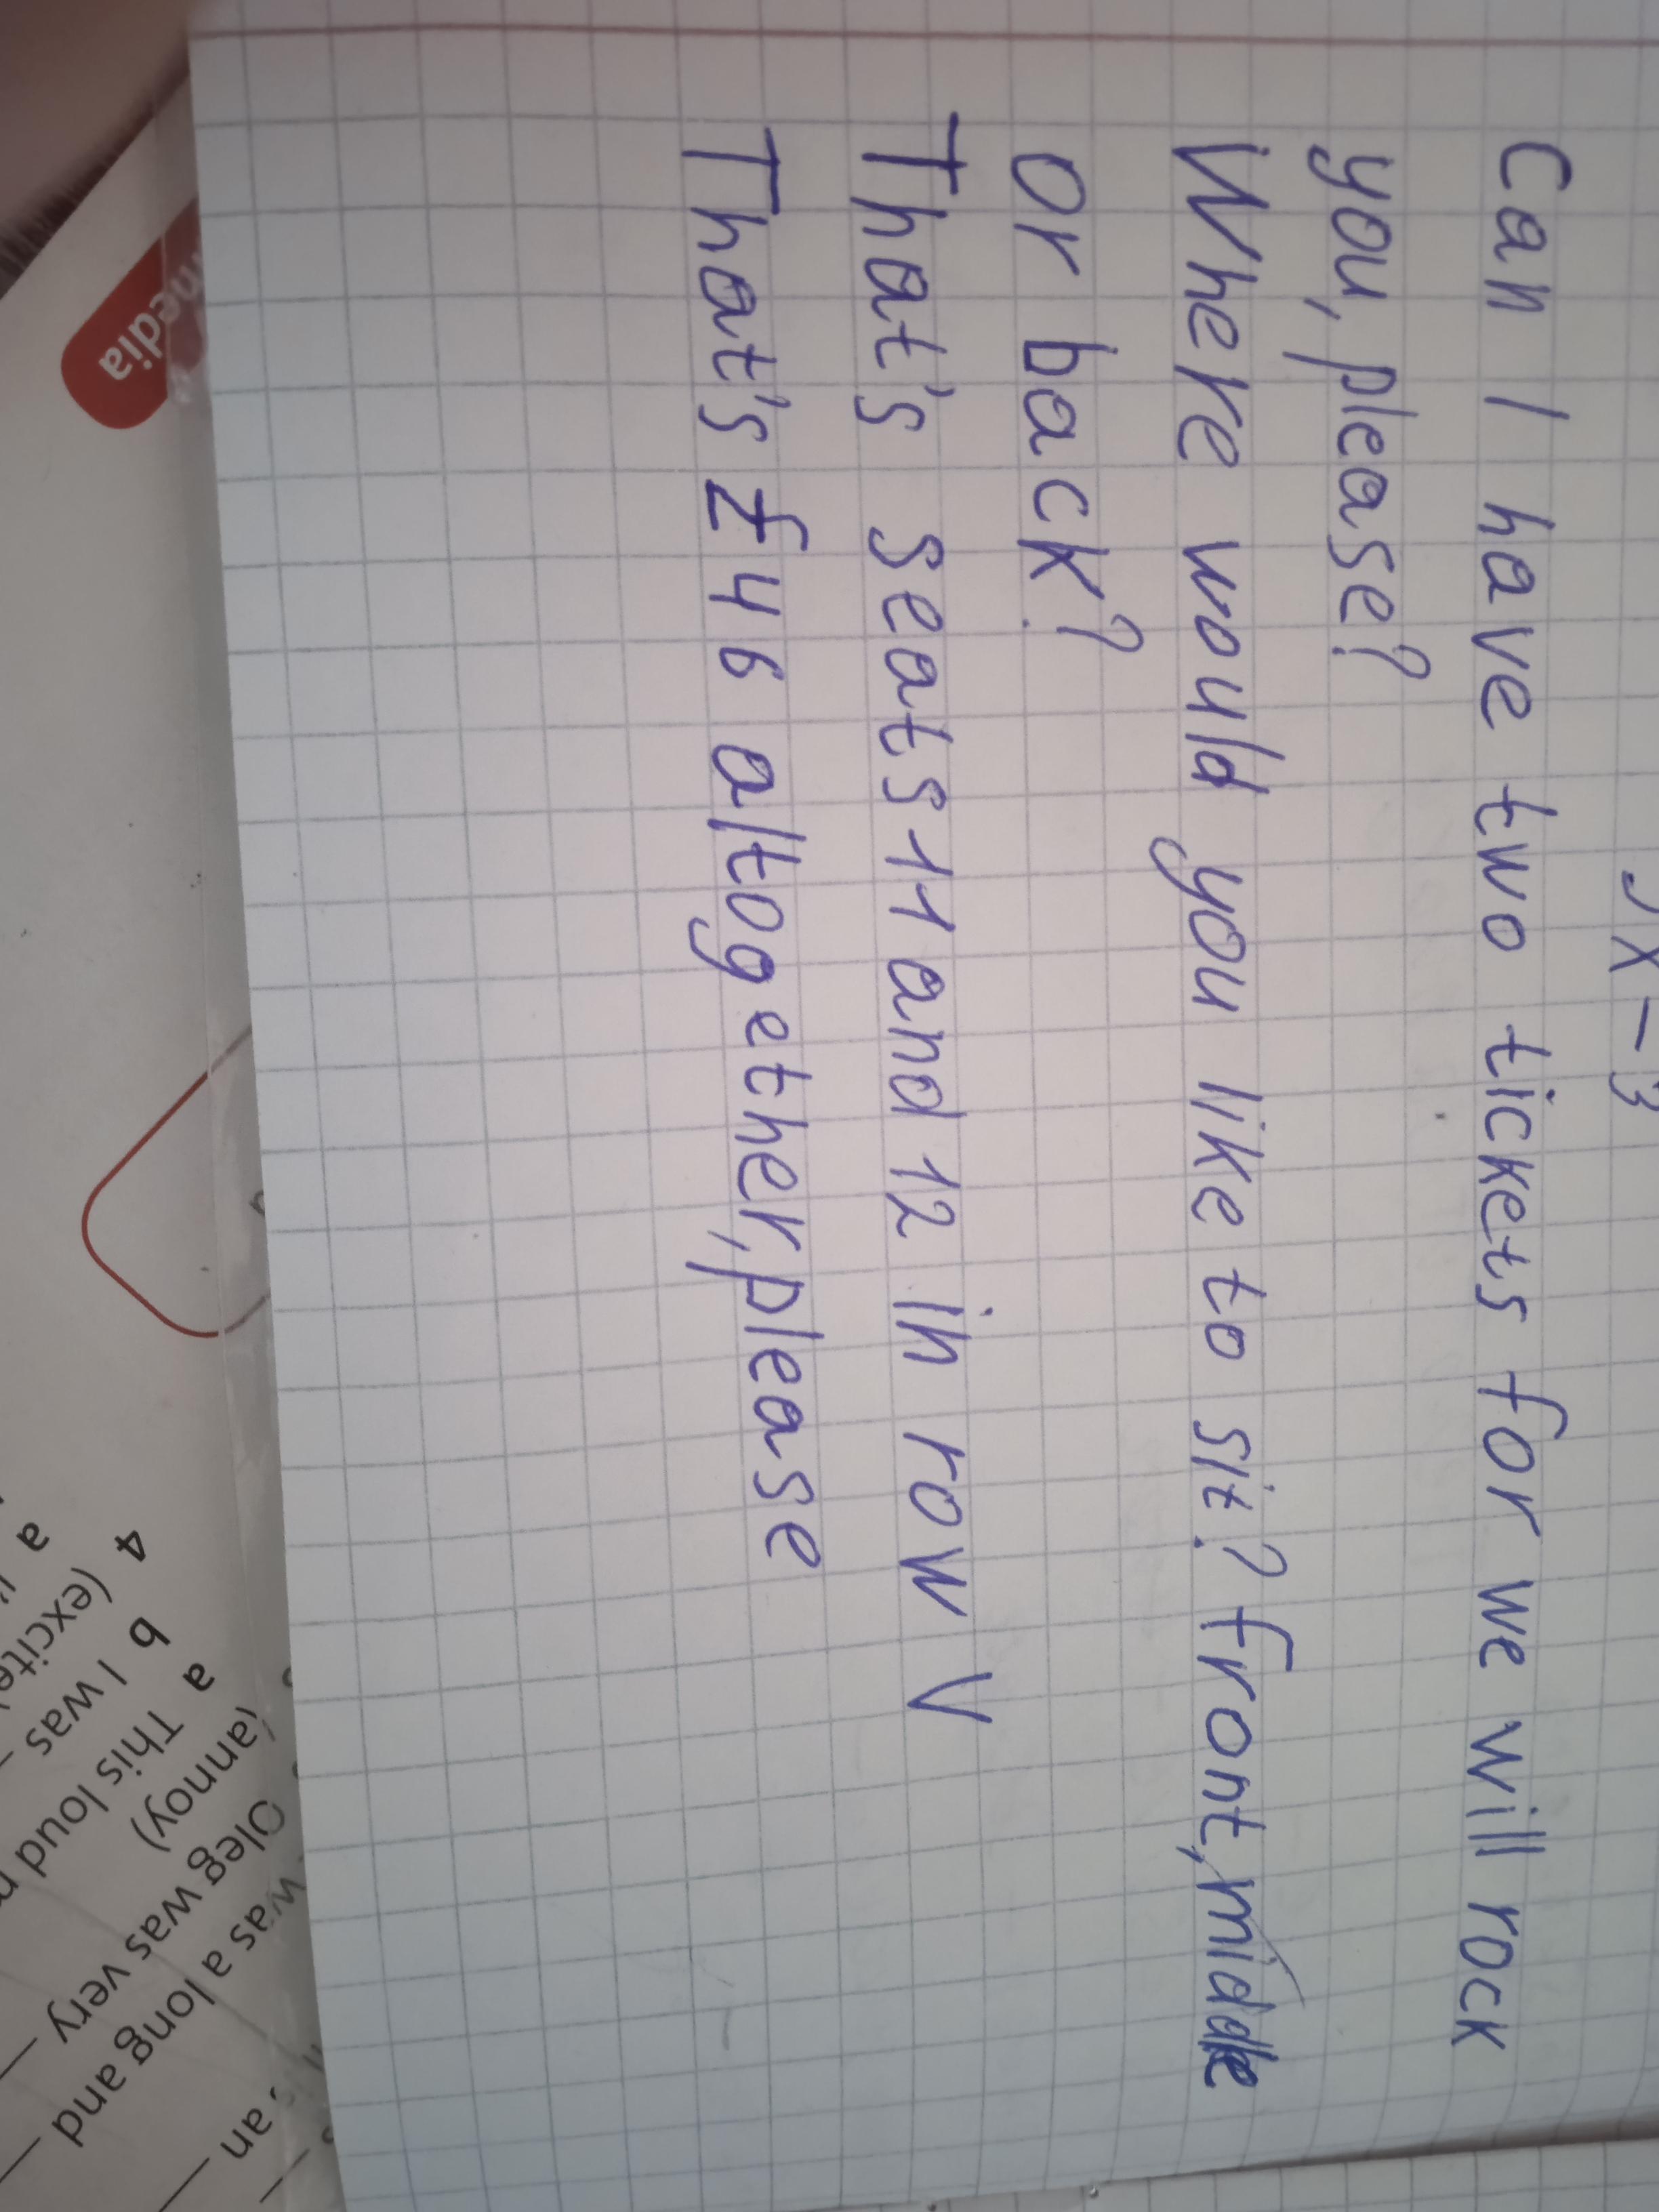 x-3
Can I have two tickets for we will rock
you, please?
Where would you like to sit? front, middle
or back?
That's seats 11 and 12 in row V
That's £46 altogether, please
media
was a long and
Oleg was very
(annoy)
a This loud
b I was
4 (excite
a
an